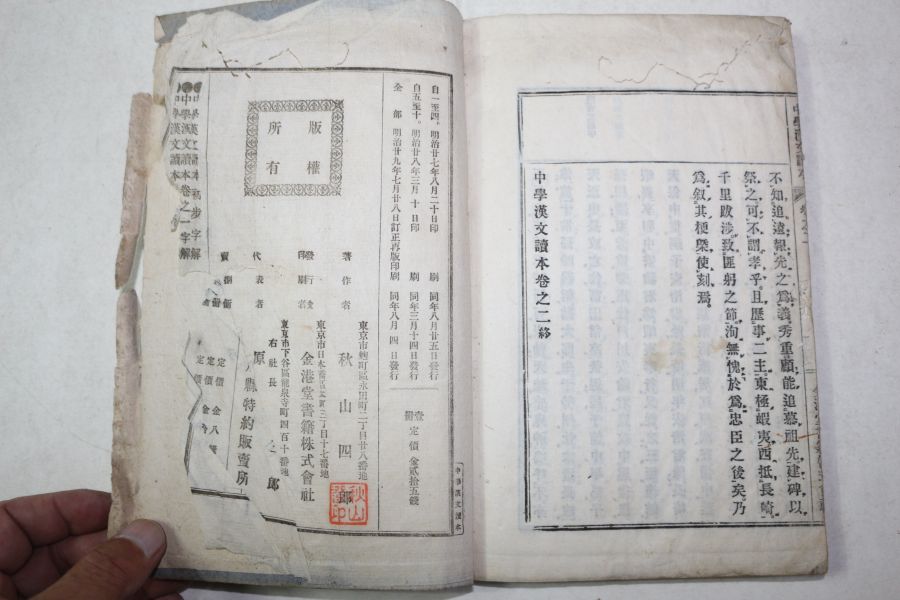 不知追遠報先之爲義秀重顧能追慕祖先建碑以
祭之可不謂孝乎且歷事二主東極蝦夷西抵長崎
千里跋涉致匪躬之節洵無愧於爲忠臣之後矣乃
爲叙其梗槩使刻焉
中學漢文讀本卷之二終
中學漢文讀本
版權
所有
自一至四。明治廿七年八月二十日印刷 同年八月廿五日發行
自五至十。明治廿八年三月十日印刷 同年三月十四日發行
全部 明治廿九年七月廿八日訂正再版印刷 同年八月四日發行
壹冊 定價金貳拾五錢
著作者
東京市麴町區永田町二丁目廿八番地
秋山四郎
秋山
印刷者
東京市日本橋區本町三丁目十七番地
金港堂書籍株式會社
代表者
右社長
原
郎
東京市下谷區龍泉寺町四百十番地
縣特約販賣所
定價
定價金八
定價金
中學漢文讀本 初步 字解
中學漢文讀本卷之一字解
中學漢文讀本